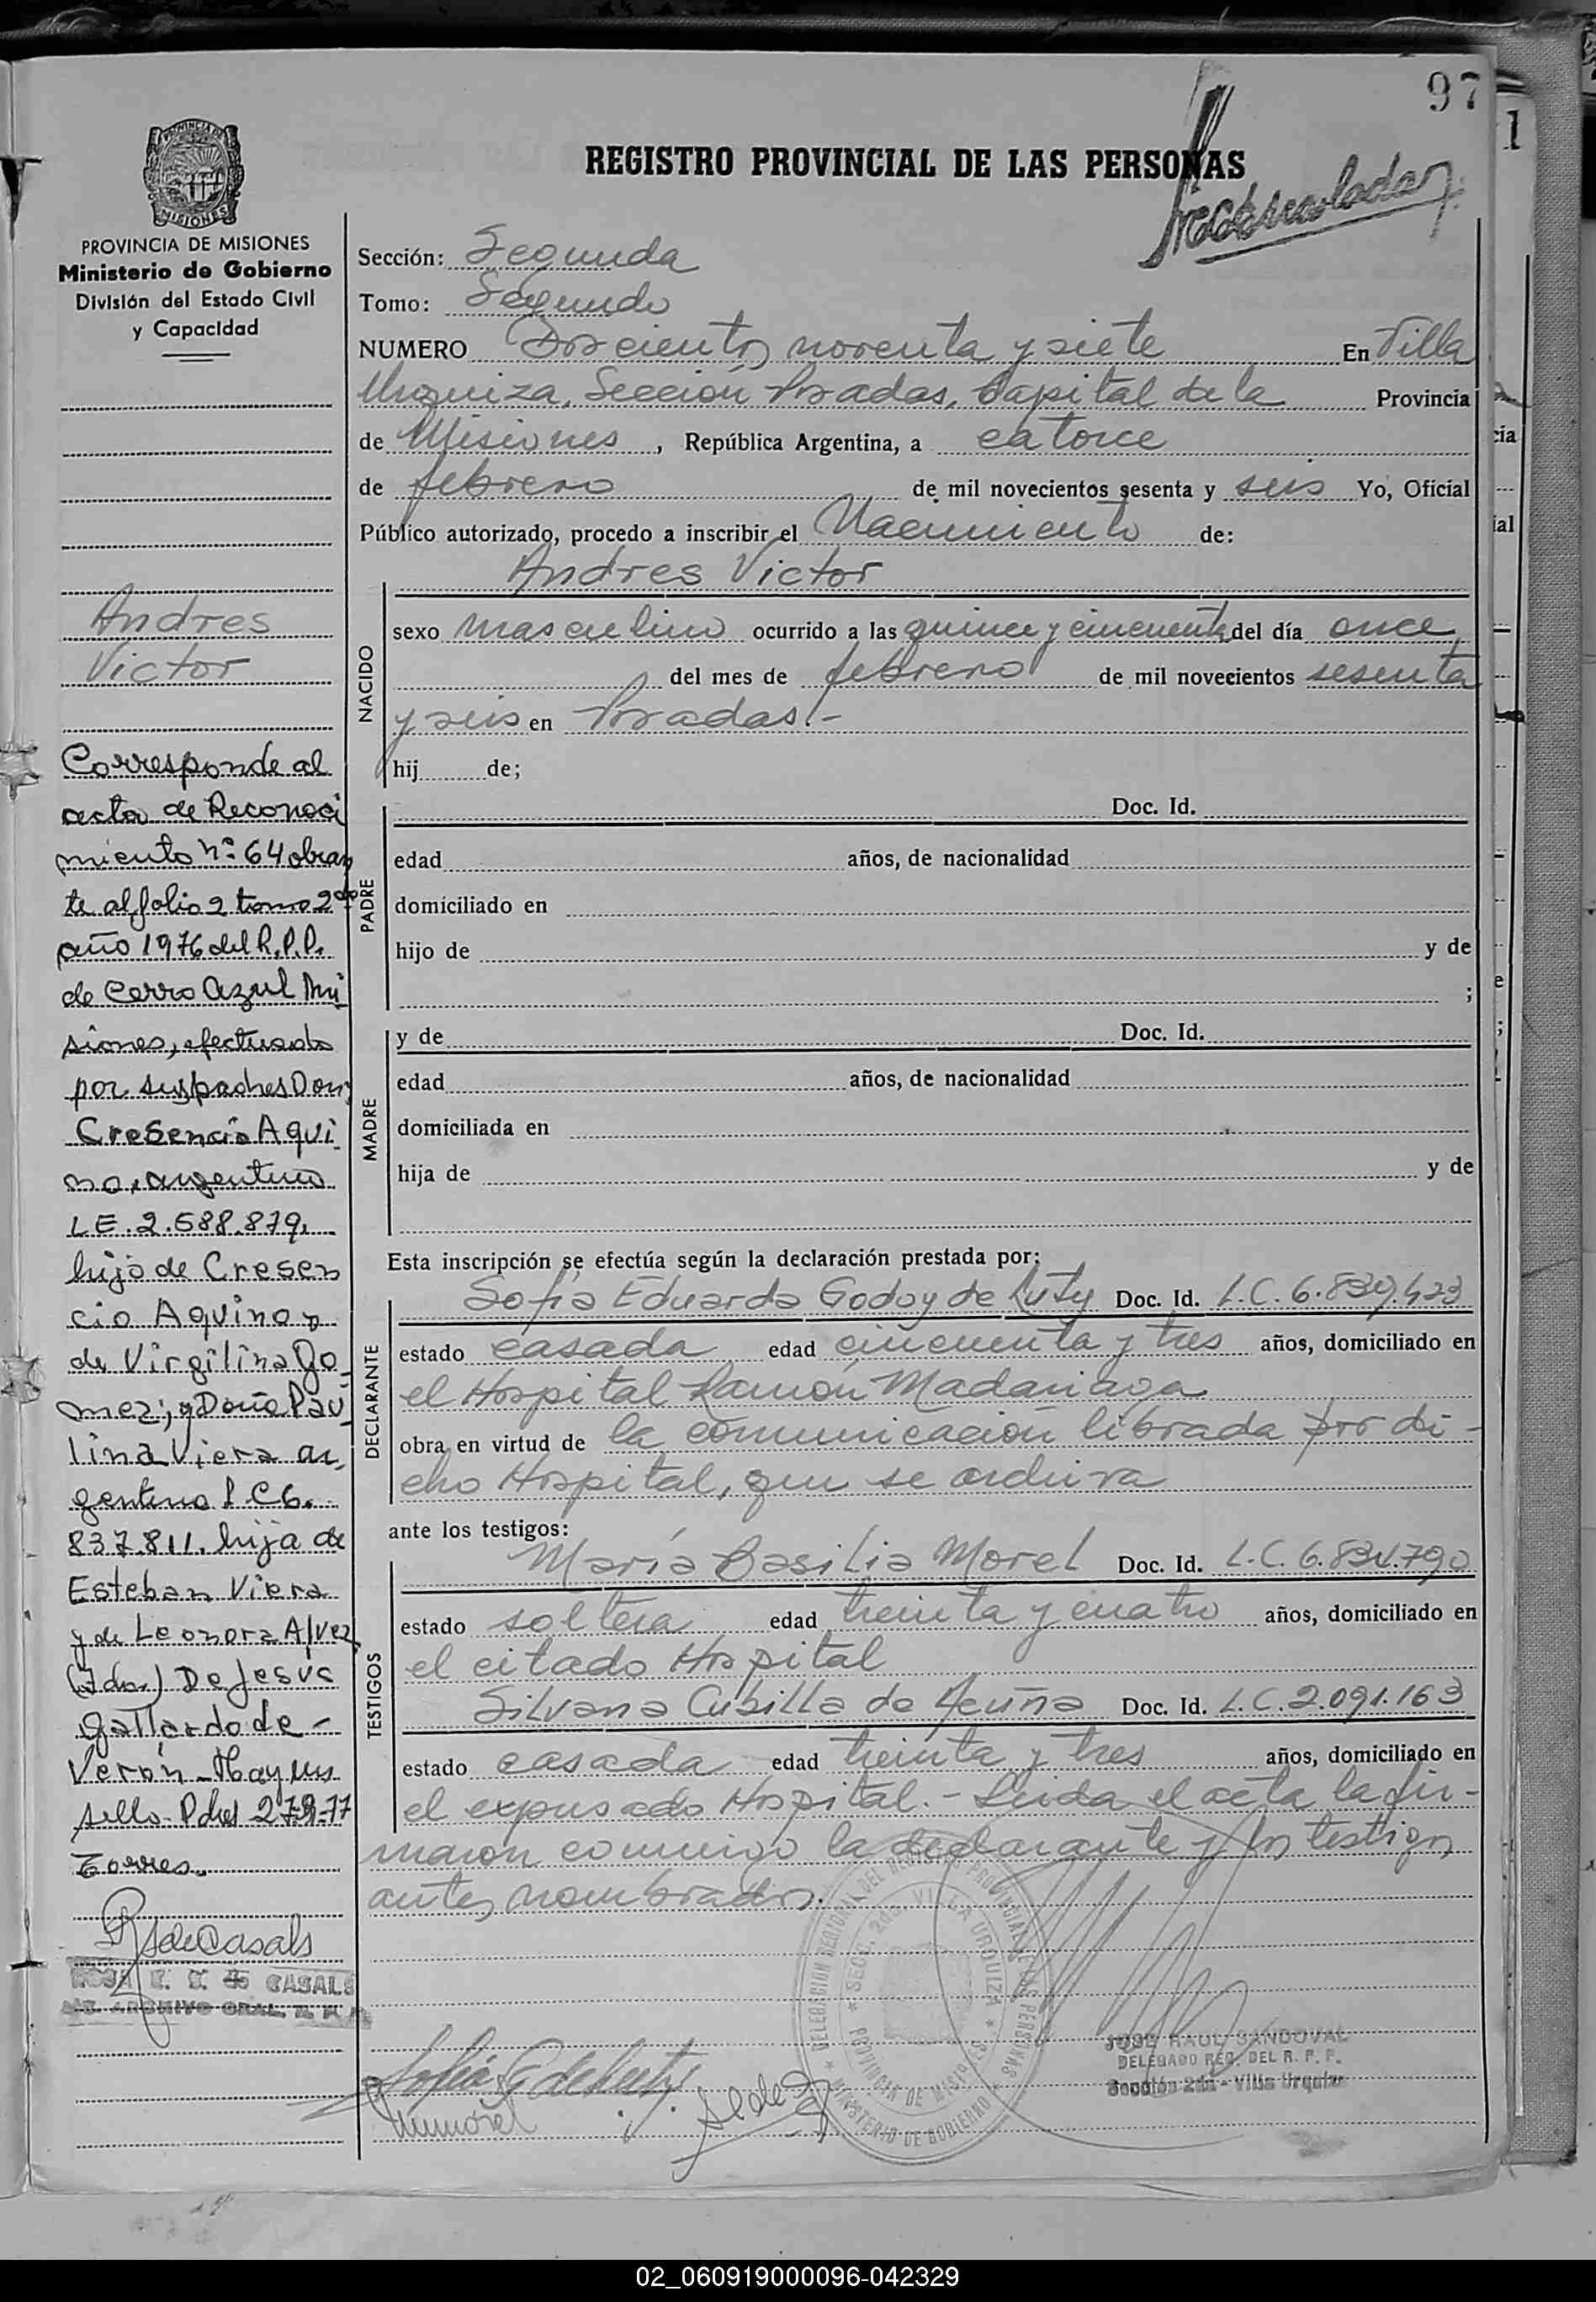 97
REGISTRO PROVINCIAL DE LAS PERSONAS
PROVINCIA DE MISIONES
Ministerio de Gobierno
División del Estado Civil
y Capacidad
Andres
Victor
Corresponde al
acta de Reconoci
miento nº 64 obran
te al folio 2 tomo 2do
año 1976 del R.P.P.
de Cerro Azul Mi
siones, efectuado
por sus padres Don
Cresencio Aqui
no, argentino
LE. 2.588.879,
hijo de Cresen
cio Aquino y
de Virgilina Go
mez; y Doña Pau
lina Viera ar
gentina L C 6.
837.811. hija de
Esteban Viera
y de Leonora Alvez
(Fdos) De Jesús
Gallardo de -
Verón - Hay un
sello - Pdas 27-9-77
Torres.
RdeCasals
ROSA E. C. de CASALS
ARCHIVO GRAL. R. P. P.
Sección: Segunda
Tomo: Segundo
NUMERO Doscientos noventa y siete En Villa
Urquiza, Sección Posadas, Capital de la Provincia
de Misiones, República Argentina, a catorce
de febrero de mil novecientos sesenta y seis Yo, Oficial
Público autorizado, procedo a inscribir el Nacimiento de:
Andres Victor
NACIDO
sexo masculino ocurrido a las quince y cincuenta del día once
del mes de febrero de mil novecientos sesenta
y seis en Posadas.-
hij de;
PADRE
Doc. Id.
edad años, de nacionalidad
domiciliado en
hijo de y de
;
MADRE
y de Doc. Id.
edad años, de nacionalidad
domiciliada en
hija de y de
Esta inscripción se efectúa según la declaración prestada por:
DECLARANTE
Sofia Eduarda Godoy de Luty Doc. Id. L.C. 6.839.423
estado casada edad cincuenta y tres años, domiciliado en
el Hospital Ramón Madariaga
obra en virtud de la comunicación librada por di-
cho Hospital, que se archiva
ante los testigos:
TESTIGOS
María Basilia Morel Doc. Id. L.C. 6.834.790
estado soltera edad treinta y cuatro años, domiciliado en
el citado Hospital
Silvana Cubilla de Acuña Doc. Id. L.C. 2.091.163
estado casada edad treinta y tres años, domiciliado en
el expresado Hospital.- Leida el acta la fir-
maron conmigo la declarante y los testigos
antes nombrados.
DELEGACION REGIONAL DEL REGISTRO PROVINCIAL DE LAS PERSONAS
MINISTERIO DE GOBIERNO
SECC. 2da. VILLA URQUIZA
PROVINCIA DE MISIONES
Sofía G de Luty
JOSE RAUL SANDOVAL
DELEGADO REG. DEL R. P. P.
Sección 2da - Villa Urquiza
02_060919000096-042329